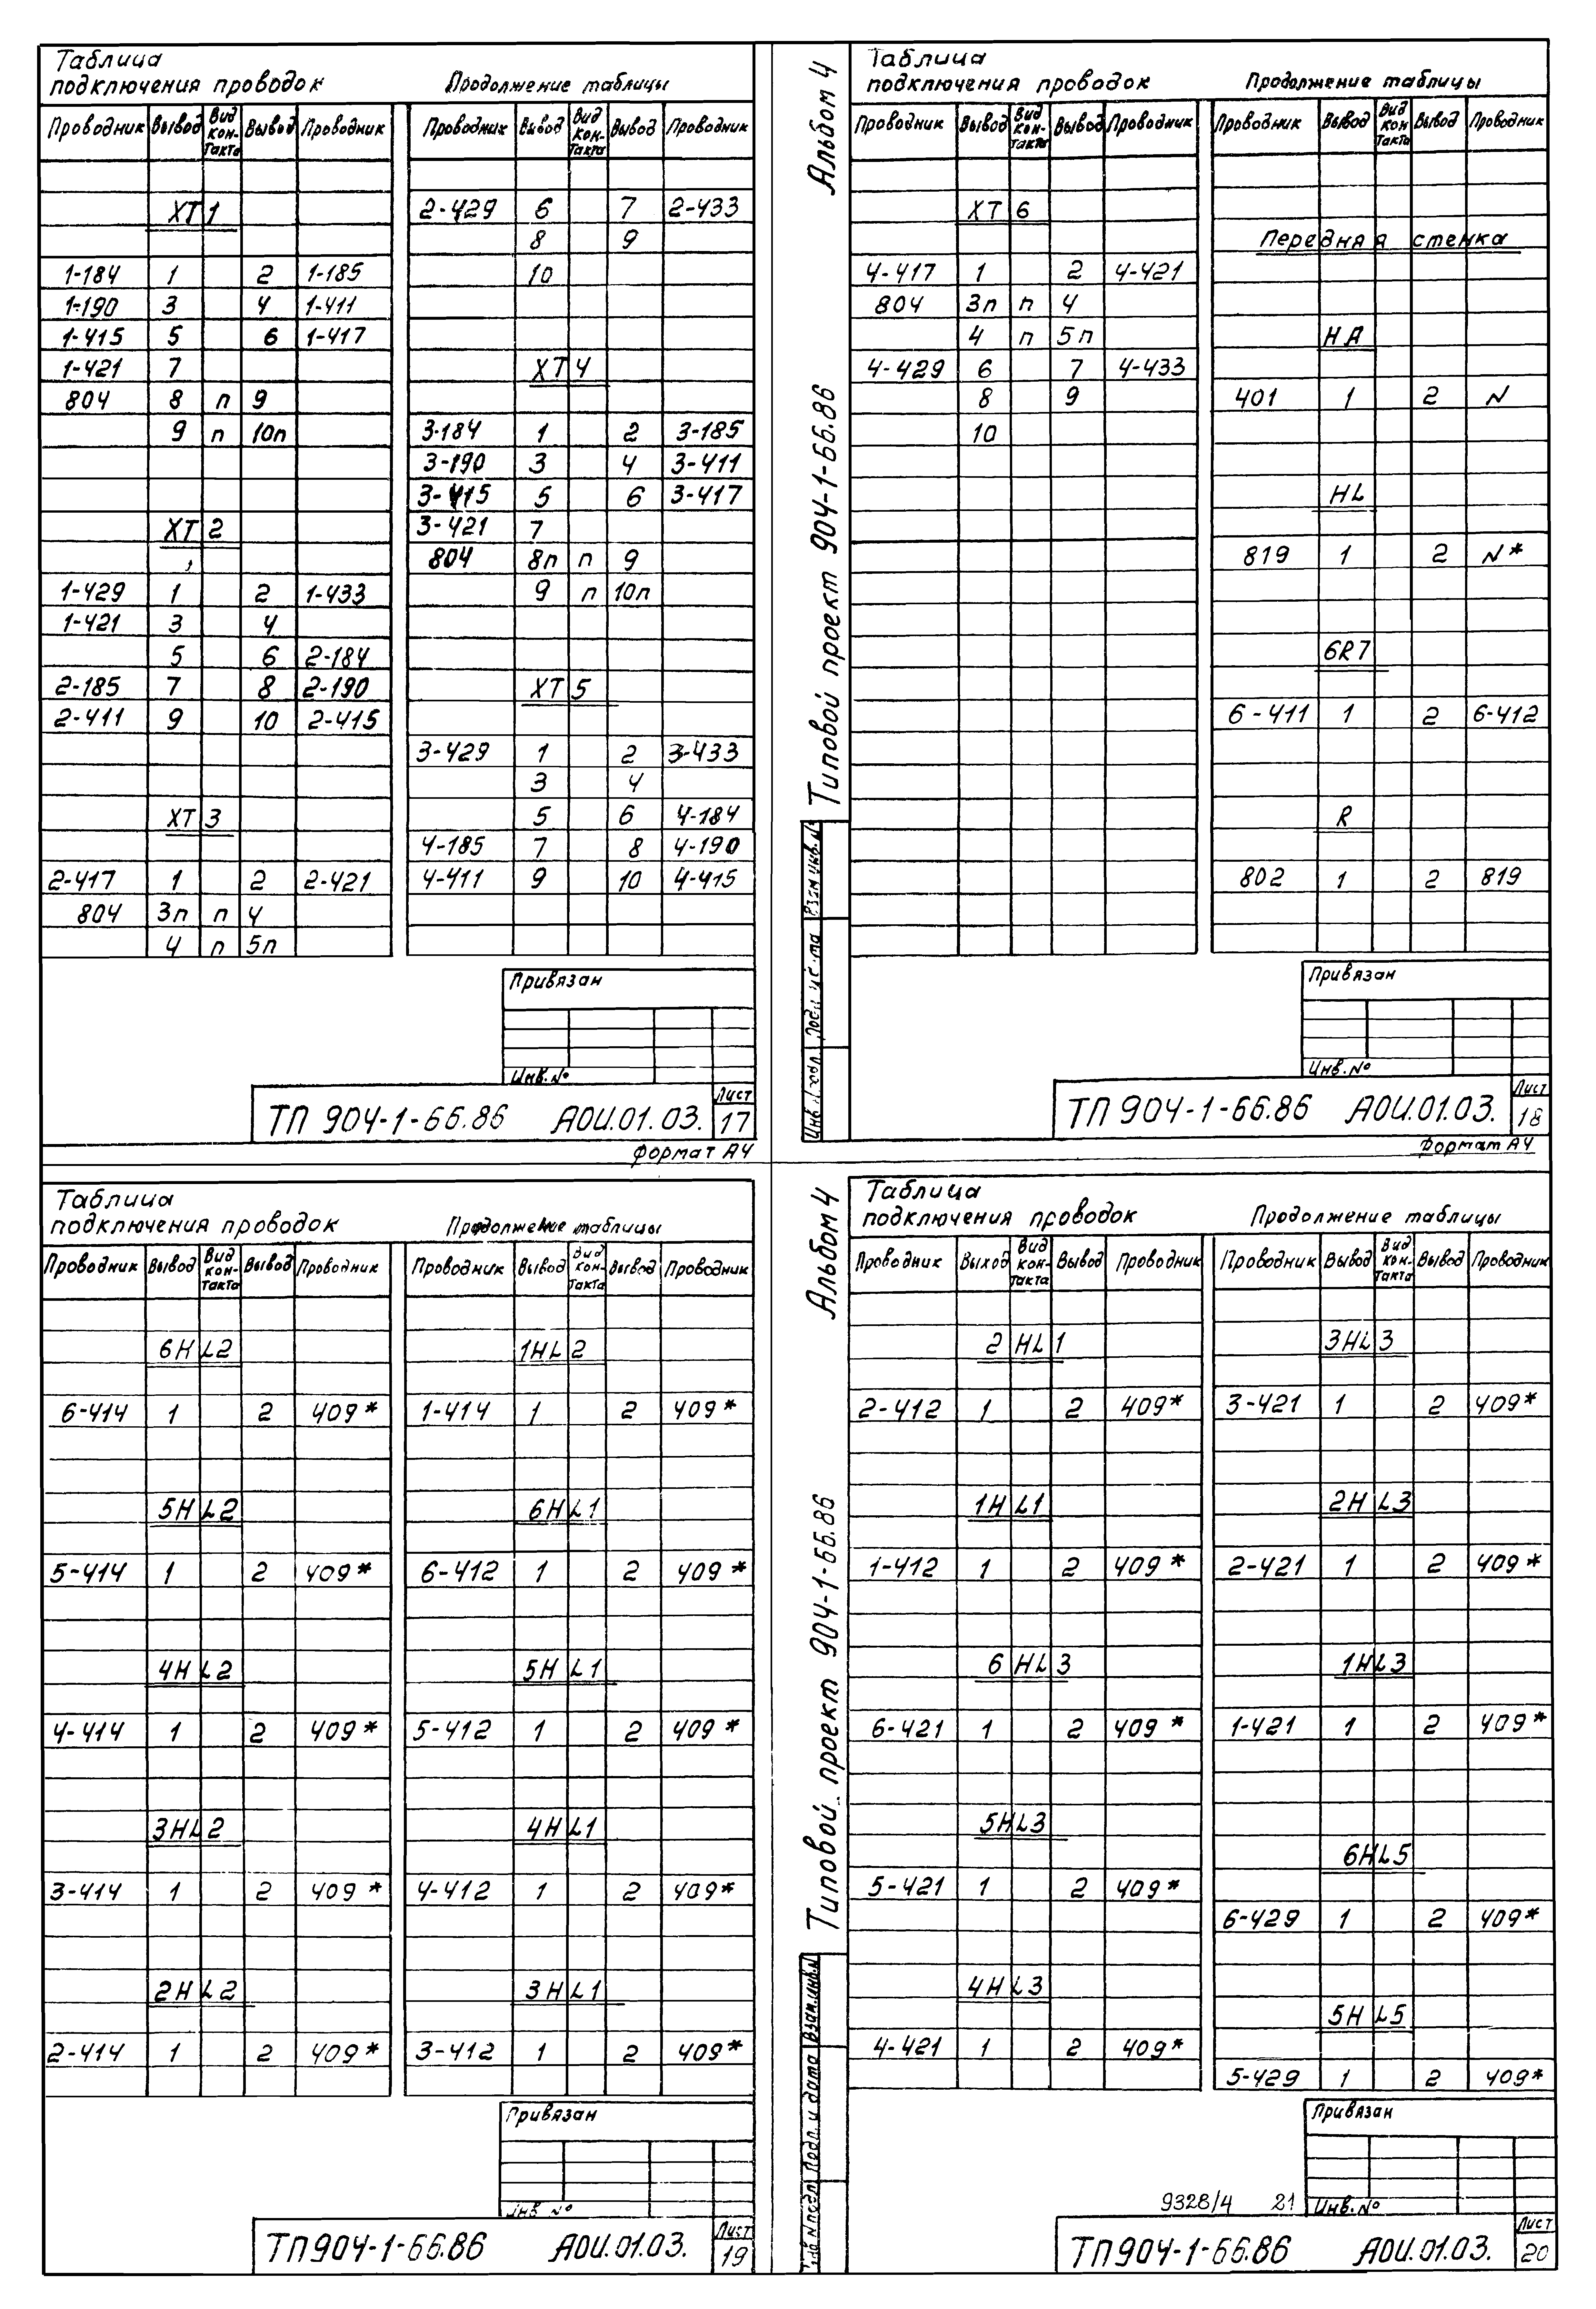 Таблица
подключения проводок
Проводник Вывод Вид кон-такта Вывод Проводник
ХТ1
1-184 1 2 1-185
1-190 3 4 1-411
1-415 5 6 1-417
1-421 7
804 8 п 9
9 п 10п
ХТ2
1-429 1 2 1-433
1-421 3 4
5 6 2-184
2-185 7 8 2-190
2-411 9 10 2-415
ХТ3
2-417 1 2 2-421
804 3п п 4
4 п 5п
Продолжение таблицы
Проводник Вывод Вид кон-такта Вывод Проводник
2-429 6 7 2-433
8 9
10
ХТ4
3-184 1 2 3-185
3-190 3 4 3-411
3-415 5 6 3-417
3-421 7
804 8п п 9
9 п 10п
ХТ5
3-429 1 2 3-433
3 4
5 6 4-184
4-185 7 8 4-190
4-411 9 10 4-415
Привязан
Инв.№
ТП 904-1-66.86 АОИ.01.03.
Лист
17
Формат А4
Альбом 4
Типовой проект 904-1-66.86
Взам инв. №
Таблица
подключения проводок
Проводник Вывод Вид кон-такта Вывод Проводник
ХТ6
4-417 1 2 4-421
804 3п п 4
4 п 5п
4-429 6 7 4-433
8 9
10
Продолжение таблицы
Проводник Вывод Вид кон такта Вывод Проводник
Передняя стенка
НА
401 1 2 N
HL
819 1 2 N*
6R7
6-411 1 2 6-412
R
802 1 2 819
Привязан
Инв.№
ТП 904-1-66.86 АОИ.01.03.
Лист
18
Формат А4
Таблица
подключения проводок
Проводник Вывод Вид кон-такта Вывод Проводник
6HL2
6-414 1 2 409*
5HL2
5-414 1 2 409*
4HL2
4-414 1 2 409*
3HL2
3-414 1 2 409*
2HL2
2-414 1 2 409*
Продолжение таблицы
Проводник Вывод Вид кон-такта Вывод Проводник
1HL2
1-414 1 2 409*
6HL1
6-412 1 2 409*
5HL1
5-412 1 2 409*
4HL1
4-412 1 2 409*
3HL1
3-412 1 2 409*
Привязан
Инв №
ТП904-1-66.86 АОИ.01.03.
Лист
19
Альбом 4
Типовой проект 904-1-66.86
Взам.инв.N
Подп. и дата
Таблица
подключения проводок
Проводник Выход Вид кон-такта Вывод Проводник
2HL1
2-412 1 2 409*
1HL1
1-412 1 2 409*
6HL3
6-421 1 2 409*
5HL3
5-421 1 2 409*
4HL3
4-421 1 2 409*
Продолжение таблицы
Проводник Вывод Вид кон-такта Вывод Проводник
3HL3
3-421 1 2 409*
2HL3
2-421 1 2 409*
1HL3
1-421 1 2 409*
6HL5
6-429 1 2 409*
5HL5
5-429 1 2 409*
Привязан
9328/4 21
Инв.№
ТП904-1-66.86 АОИ.01.03.
Лист
20